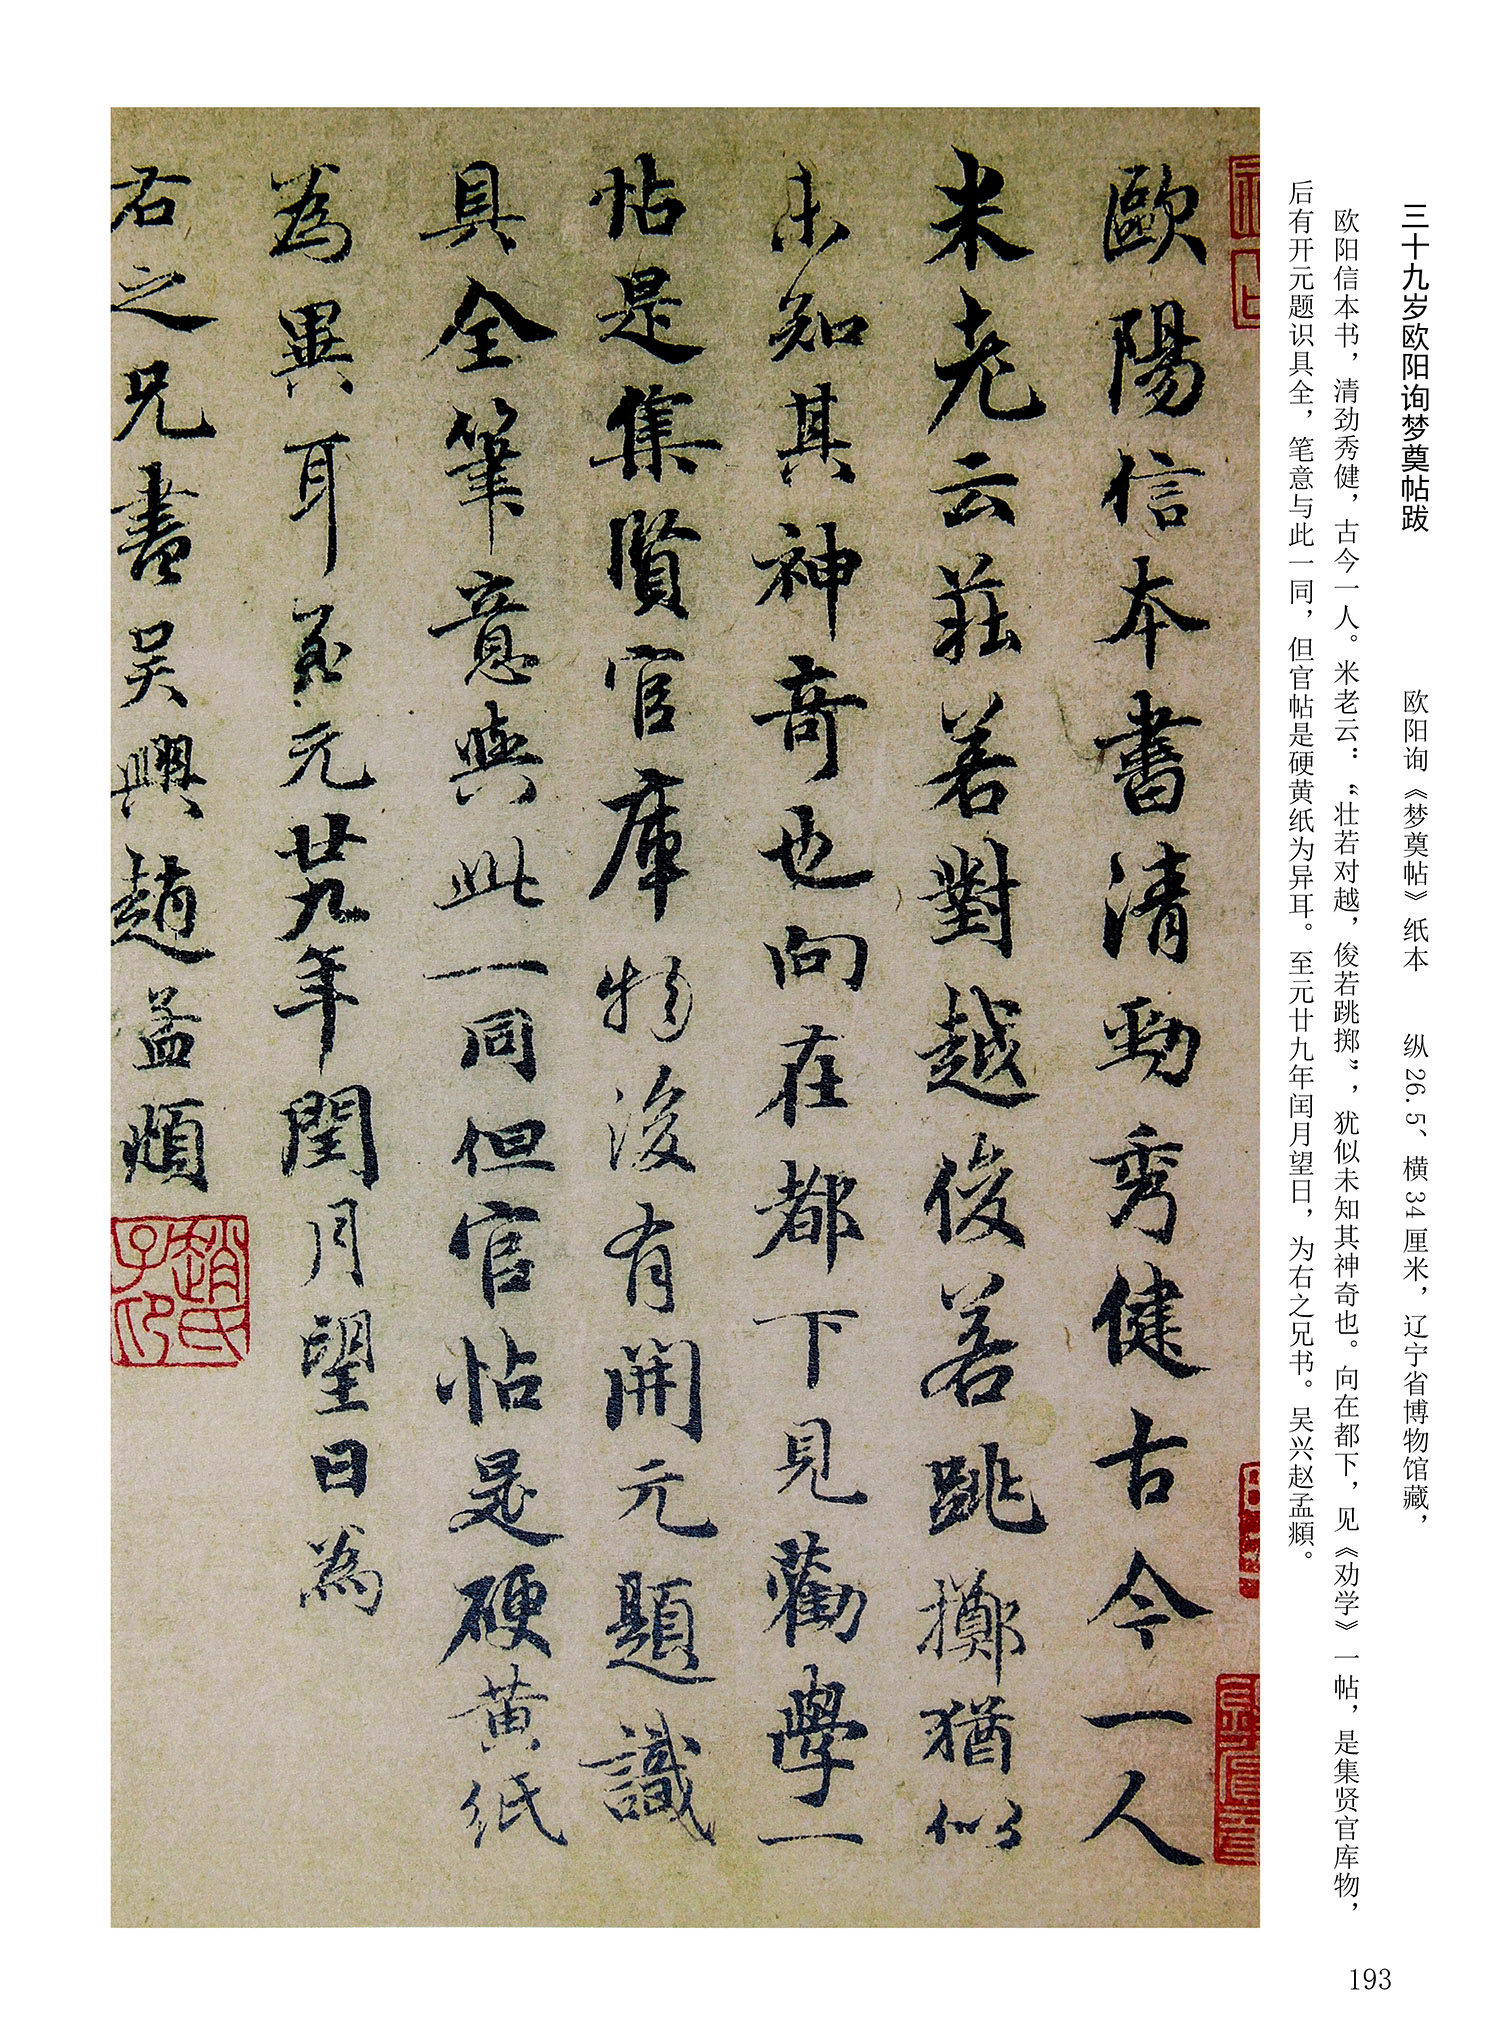 三十九岁欧阳询梦奠帖跋　欧阳询《梦奠帖》纸本　纵26.5、横34厘米，辽宁省博物馆藏，
欧阳信本书，清劲秀健，古今一人。米老云：“壮若对越，俊若跳掷”，犹似未知其神奇也。向在都下，见《劝学》一帖，是集贤官库物，
后有开元题识具全，笔意与此一同，但官帖是硬黄纸为异耳。至元廿九年闰月望日，为右之兄书。吴兴赵孟頫。
歐陽信本書清勁秀健古今一人
米老云莊若對越俊若跳擲猶似
未知其神奇也向在都下見勸學一
帖是集賢官庫物後有開元題識
具全筆意與此一同但官帖是硬黄紙
為異耳至元廿九年閏月望日為
右之兄書吴興趙孟頫
趙氏子印
193